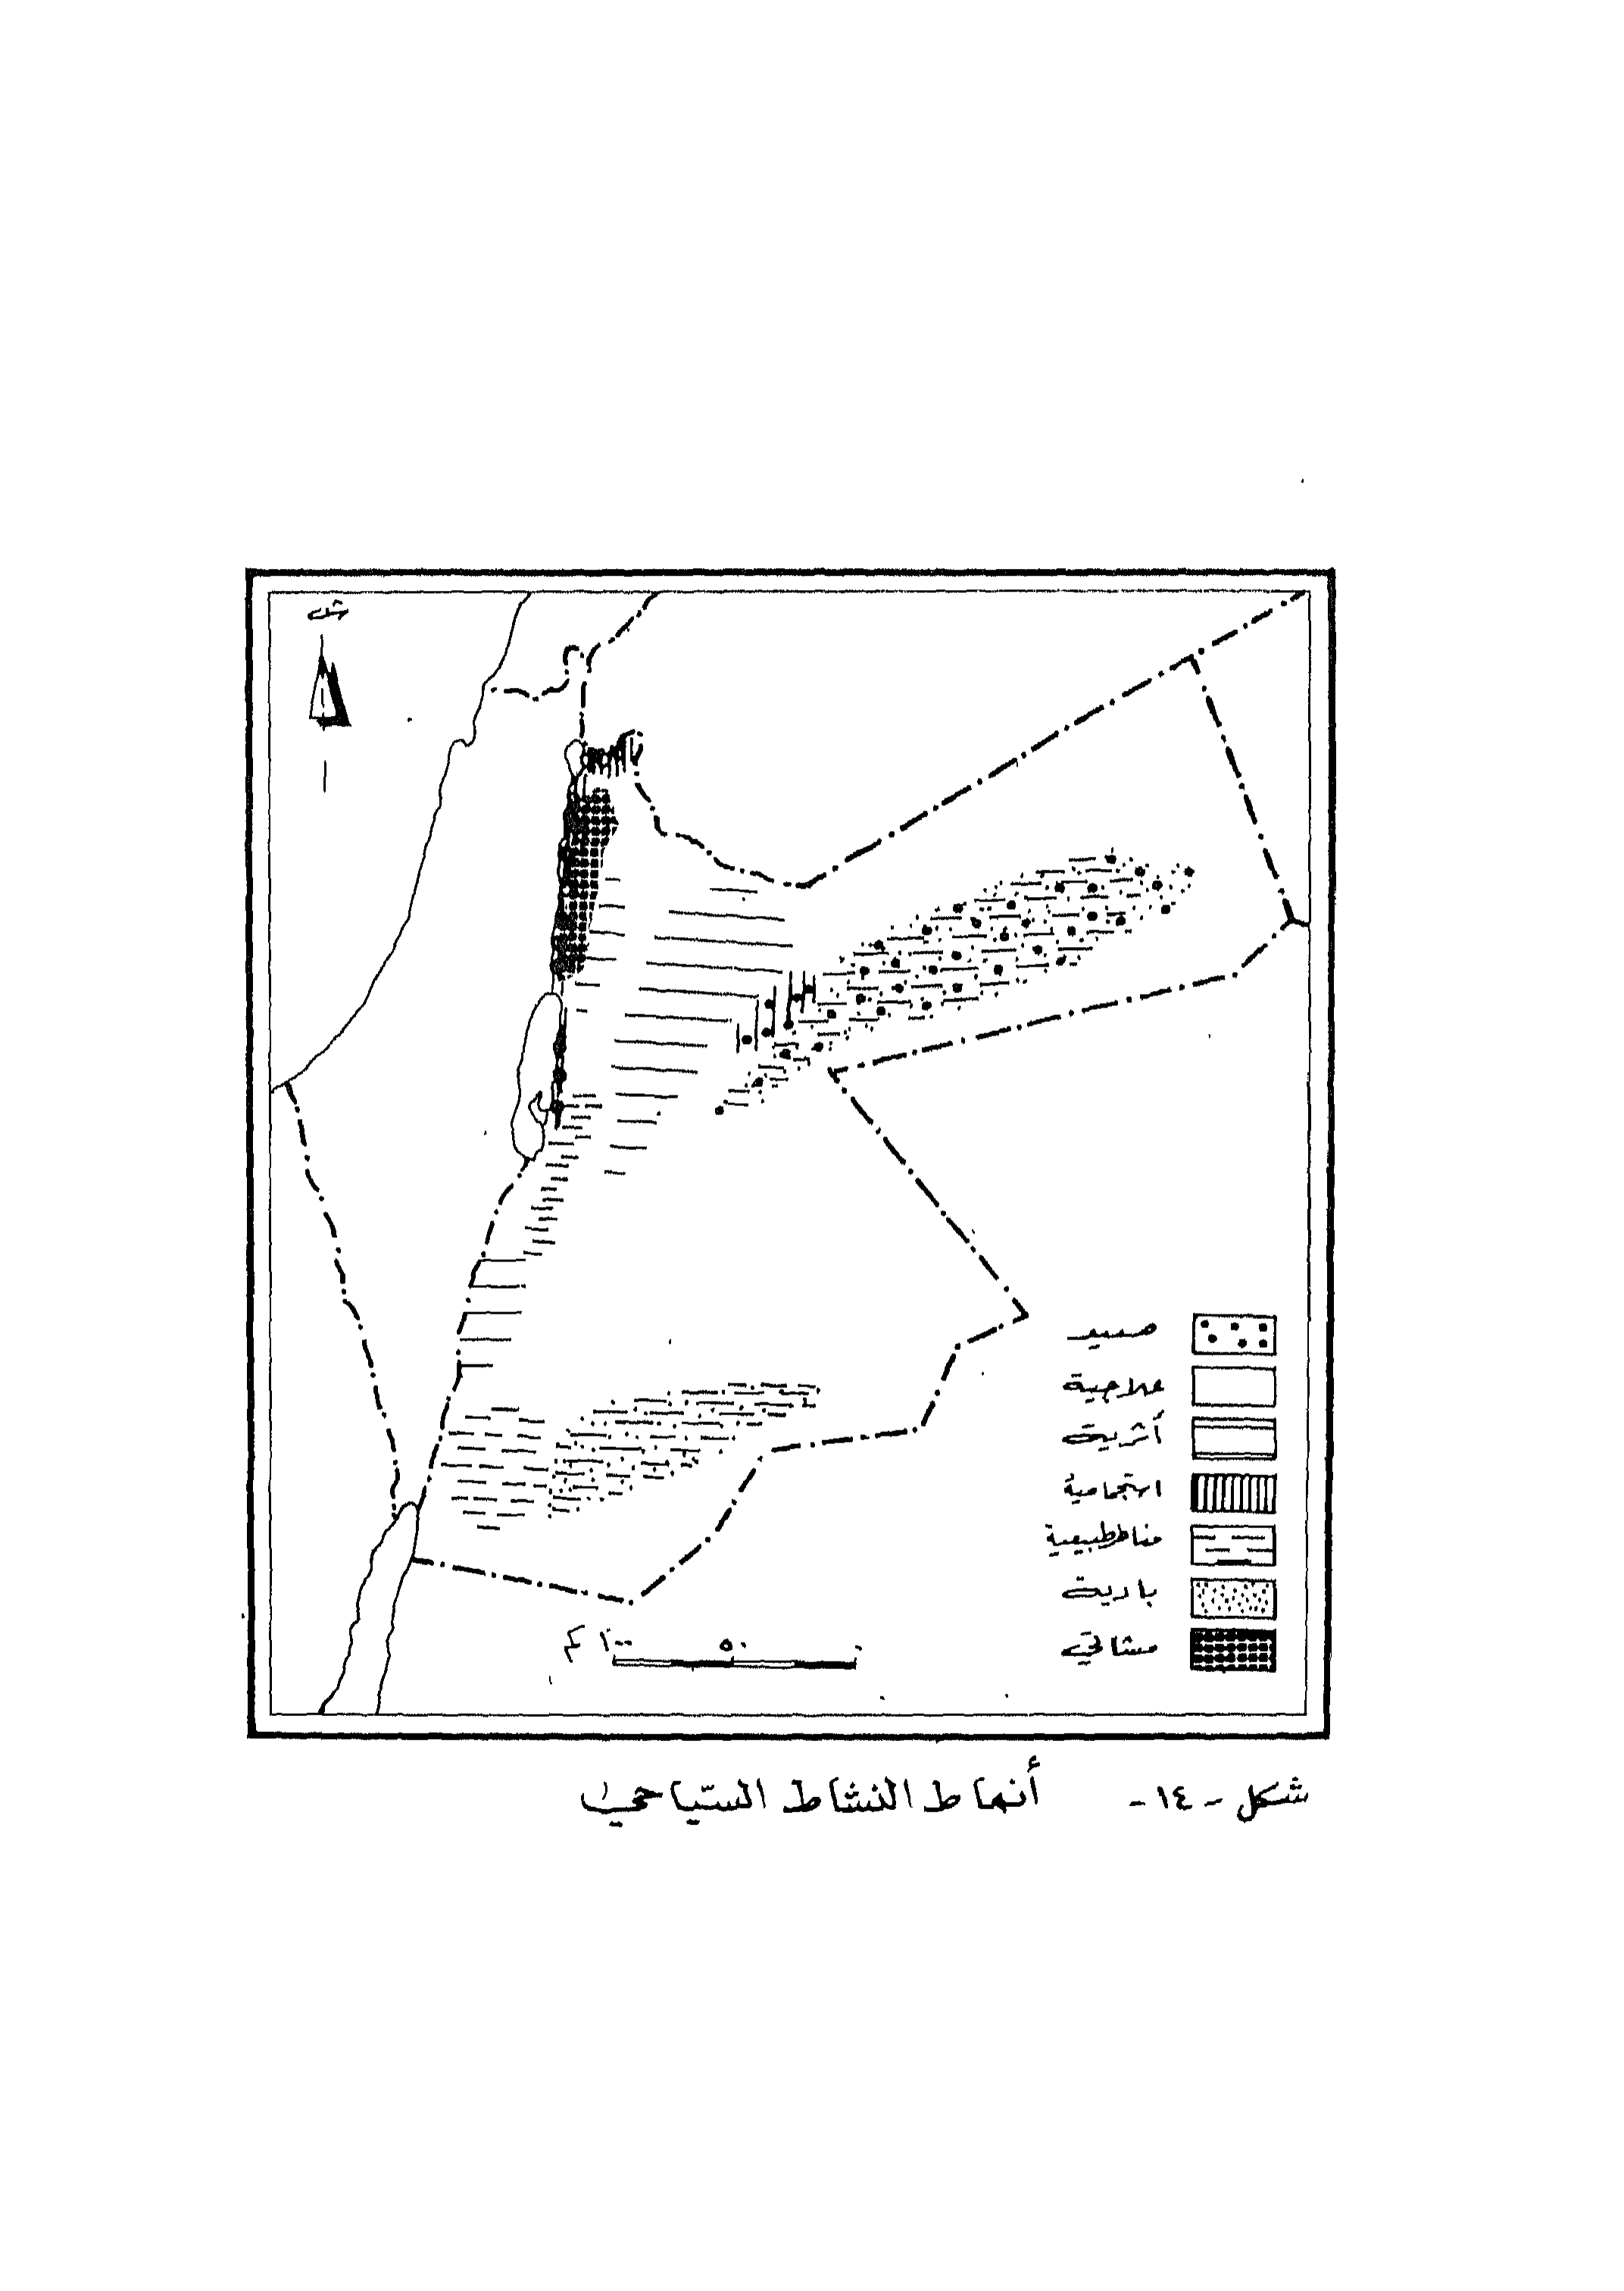 ش
صيد
علاجية
أثرية
استجمامية
مناظر طبيعية
بادية
مشاتي
٠ ٥٠ ١٠٠ كم
شكل -١٤- أنماط النشاط السيّاحي